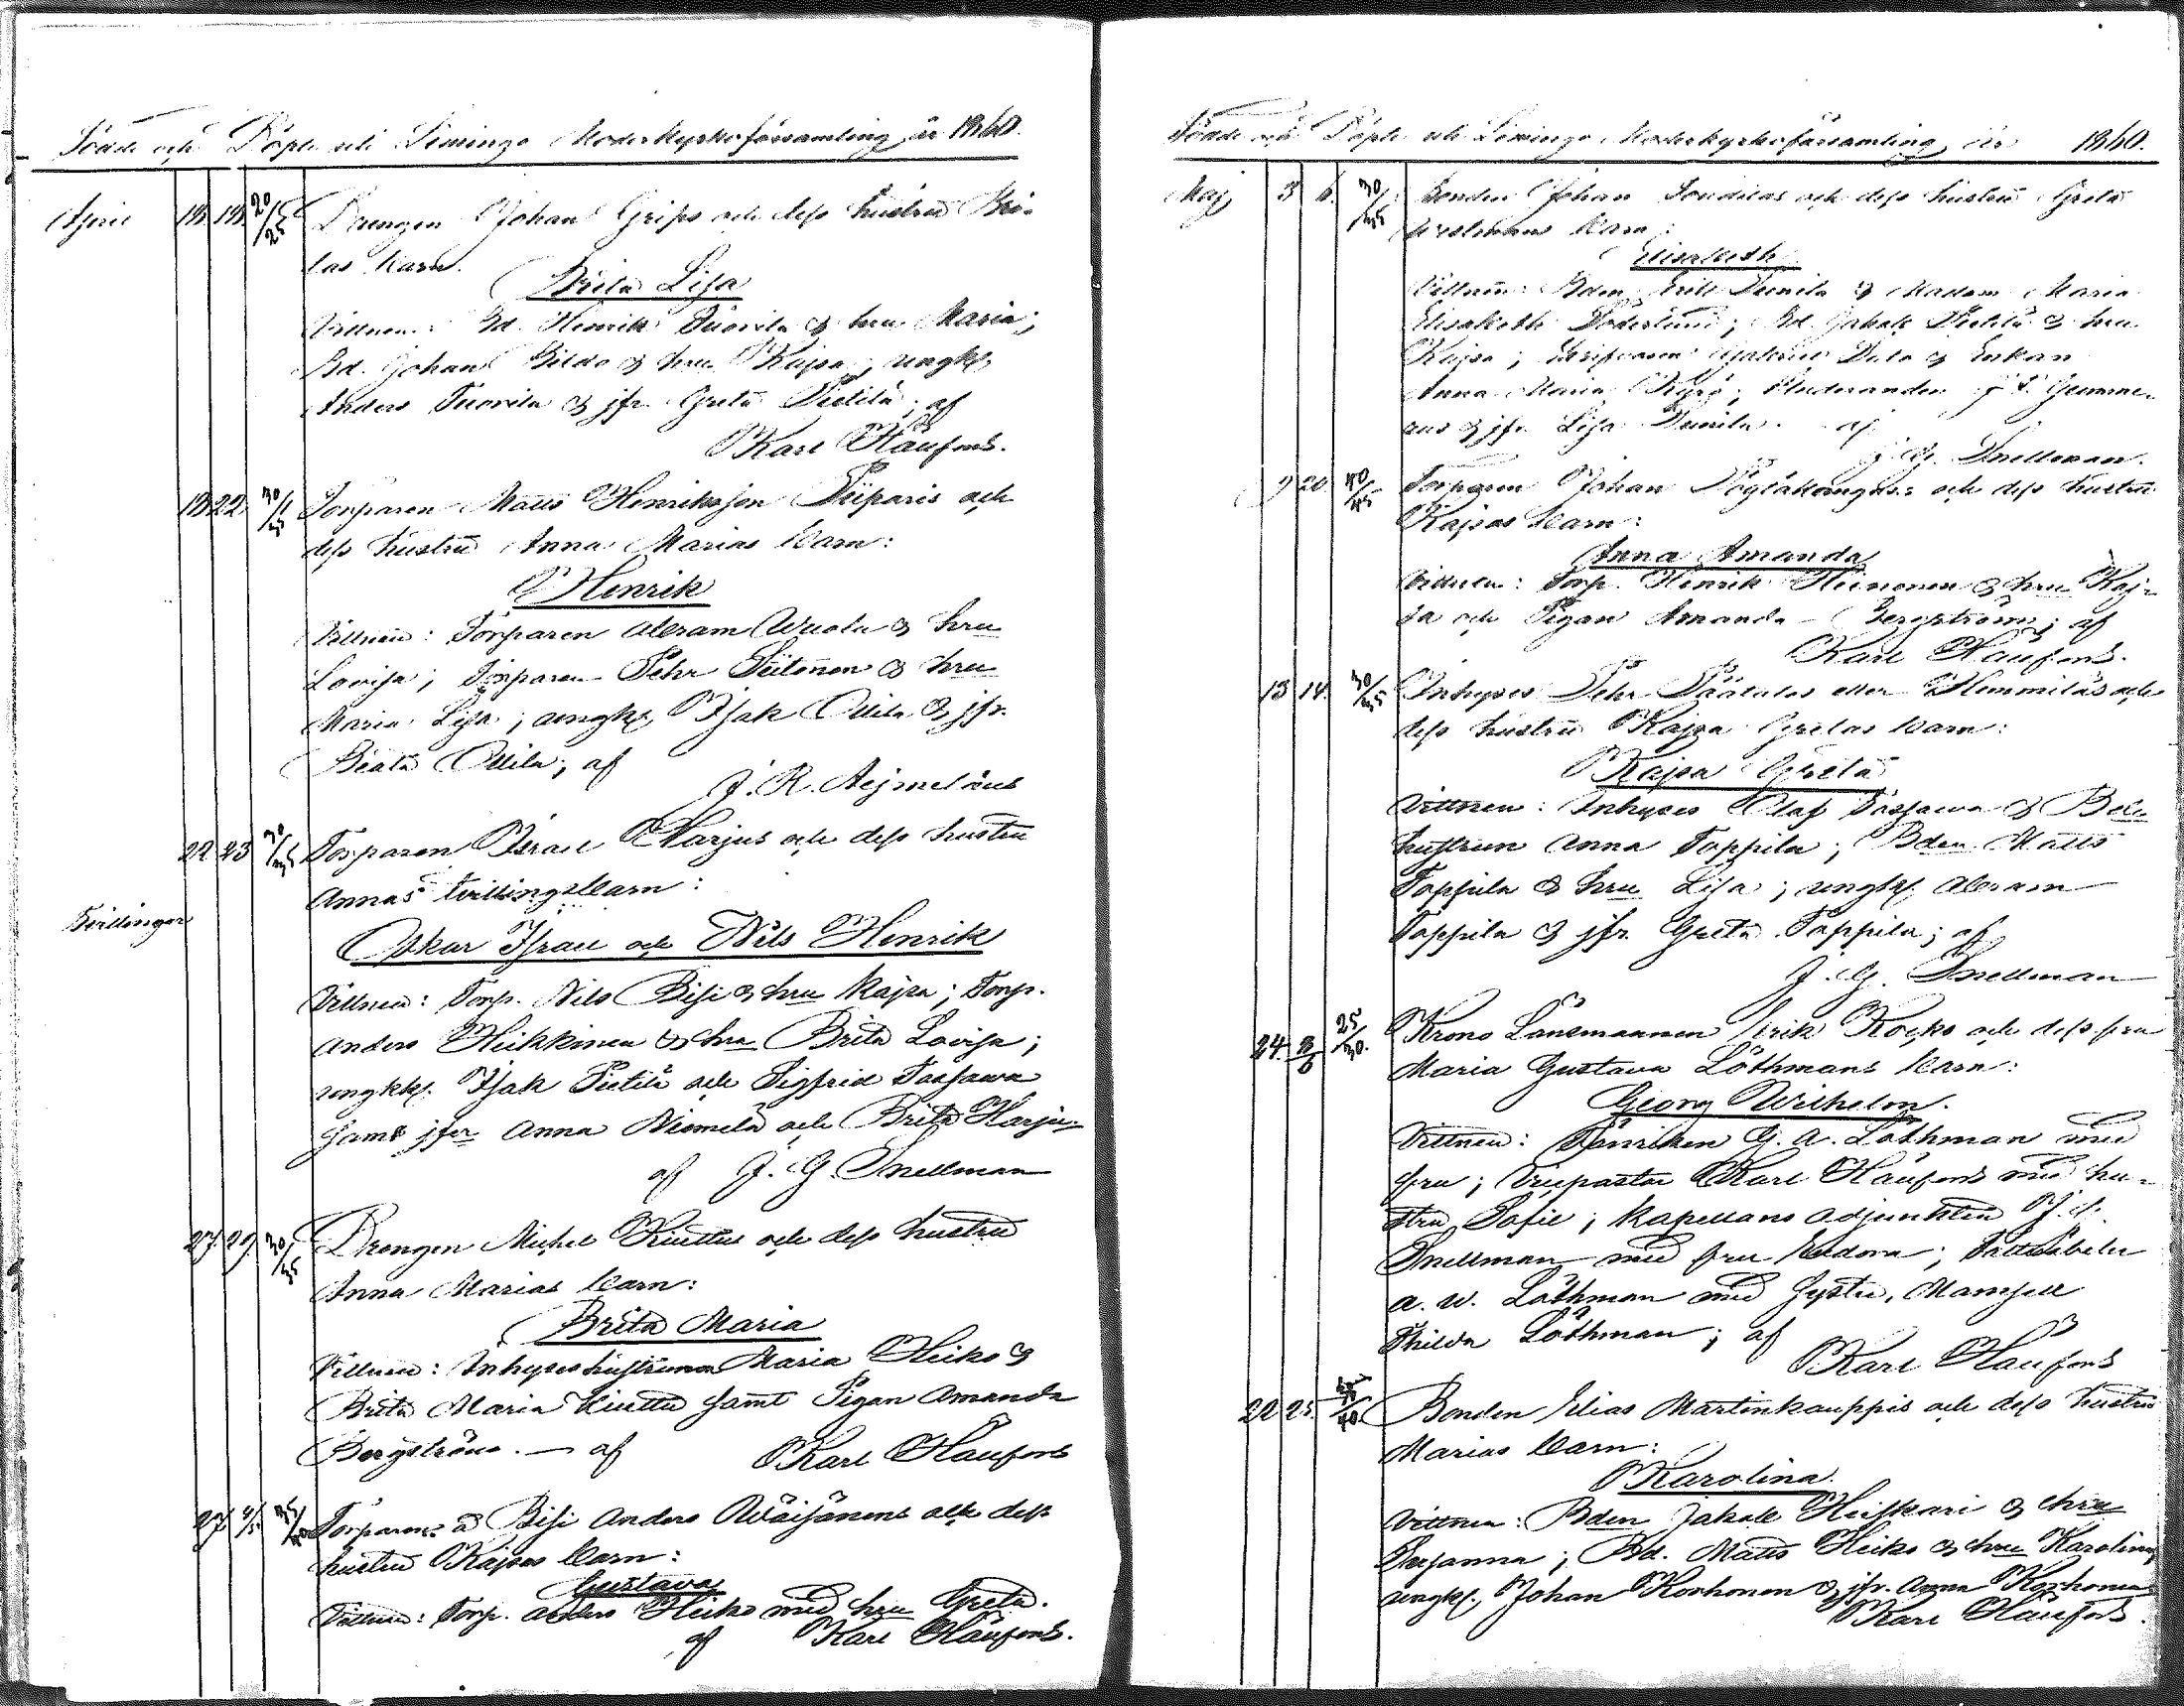 Födde och Döpte uti Limingo Moderkyrkoförsamling år 1860.
April 13. 13. 20/25 Drengen Johan Grips och dess hustru Bri-
tas barn.
Brita Lisa
Vittnen: Bd. Henrik Tuorila & hru Maria;
Bd. Johan Kildo & hru Kajsa; ungk.
Anders Tuorila & jfr. Greta Pietilä; af
Karl Häufons.
13 22. 30/35 Torparen Matts Henriksson Piiparis och
dess hustru Anna Marias barn:
Henrik
Vittnen: Torparen Abram Wuolu & hru
Lovisa; Torparen Pehr Siitonen & hru
Maria Lisa; ungk. Isak Ollila & jfr.
Beata Ollila; af
J. R. Aejmelæus
22 23 30/35 Torparen Israel Harjus och dess hustru
Annas tvillingsbarn:
Tvillingar
Oskar Israel och Nils Henrik
Vittnen: Torp. Nils Bisi & hru Kajsa; Torp.
Anders Heikkinen & hru Brita Lovisa;
ungkk. Isak Pietilä och Sigfrid Tassawa
samt jfr Anna Niemelä och Brita Harju
af J. G. Snellman
27 29 30/35 Drengen Michel Kiuttus och dess hustru
Anna Marias barn:
Brita Maria
Vittnen: Inhyses hustrurna Maria Heiko &
Brita Maria Kiuttu samt Pigan Amanda
Bergström. — af Karl Häufons
27 Torparens å Bisi Anders Wäisänens och dess
hustru Kajsas barn:
Gustava
Vittnen: Torp. Anders Heiko med hru Greta.
af Karl Häufons.
Födde och Döpte uti Limingo Moderkyrkoförsamling år 1860.
Maj 3 6. 30/35 Bonden Johan och dess hustru Greta
barn:
Elisabeth
Vittnen: Bden Erik Tuorila & Madam Maria
Elisabeth Söderlund; Bd. Jakob Pietilä & hru
Kajsa; Gabriel & Enkan
Anna Maria; Studeranden J. F. Gumme-
rus & jfr Lisa Tuorila. af
J. G. Snellman.
9 20. 40/45 Torparen Johan och dess hustru
Kajsas barn:
Anna Amanda
Vittnen: Torp. Henrik Heinonen & hru Kaj-
sa och Pigan Amanda Bergström; af
Karl Häufons.
13 14. 30/35 Inhyses Pehr Päätalos eller Hemmiläs och
dess hustru Kajsa Gretas barn:
Kajsa Greta
Vittnen: Inhyses Olaf Tassawa & Bde
hustrun Anna Toppila; Bden Matts
Toppila & hru Lisa; ungk. Abram
Toppila & jfr. Greta Toppila; af
J. G. Snellman
24. 3/6 25/30. Krono Länsmannen Erik Kocko och dess fru
Maria Gustava Löthmans barn:
Georg Wilhelm.
Vittnen: Fänriken G. A. Löthman med
fru; Vicepastor Karl Häufons med hu-
stru Sofie; Kapellans adjunkten J. G.
Snellman med fru Eudora;
A. W. Löthman med Syster, Mamsell
Thilda Löthman; af
Karl Häufons
22 25. Bonden Elias Martinkauppis och dess hustru
Marias barn:
Karolina.
Vittnen: Bden Jakob Heiskari & hru
Susanna; Bd. Matts Heiko & hru Karolina
ungk. Johan Korhonen & jfr. Anna Korhonen
Karl Häufons.